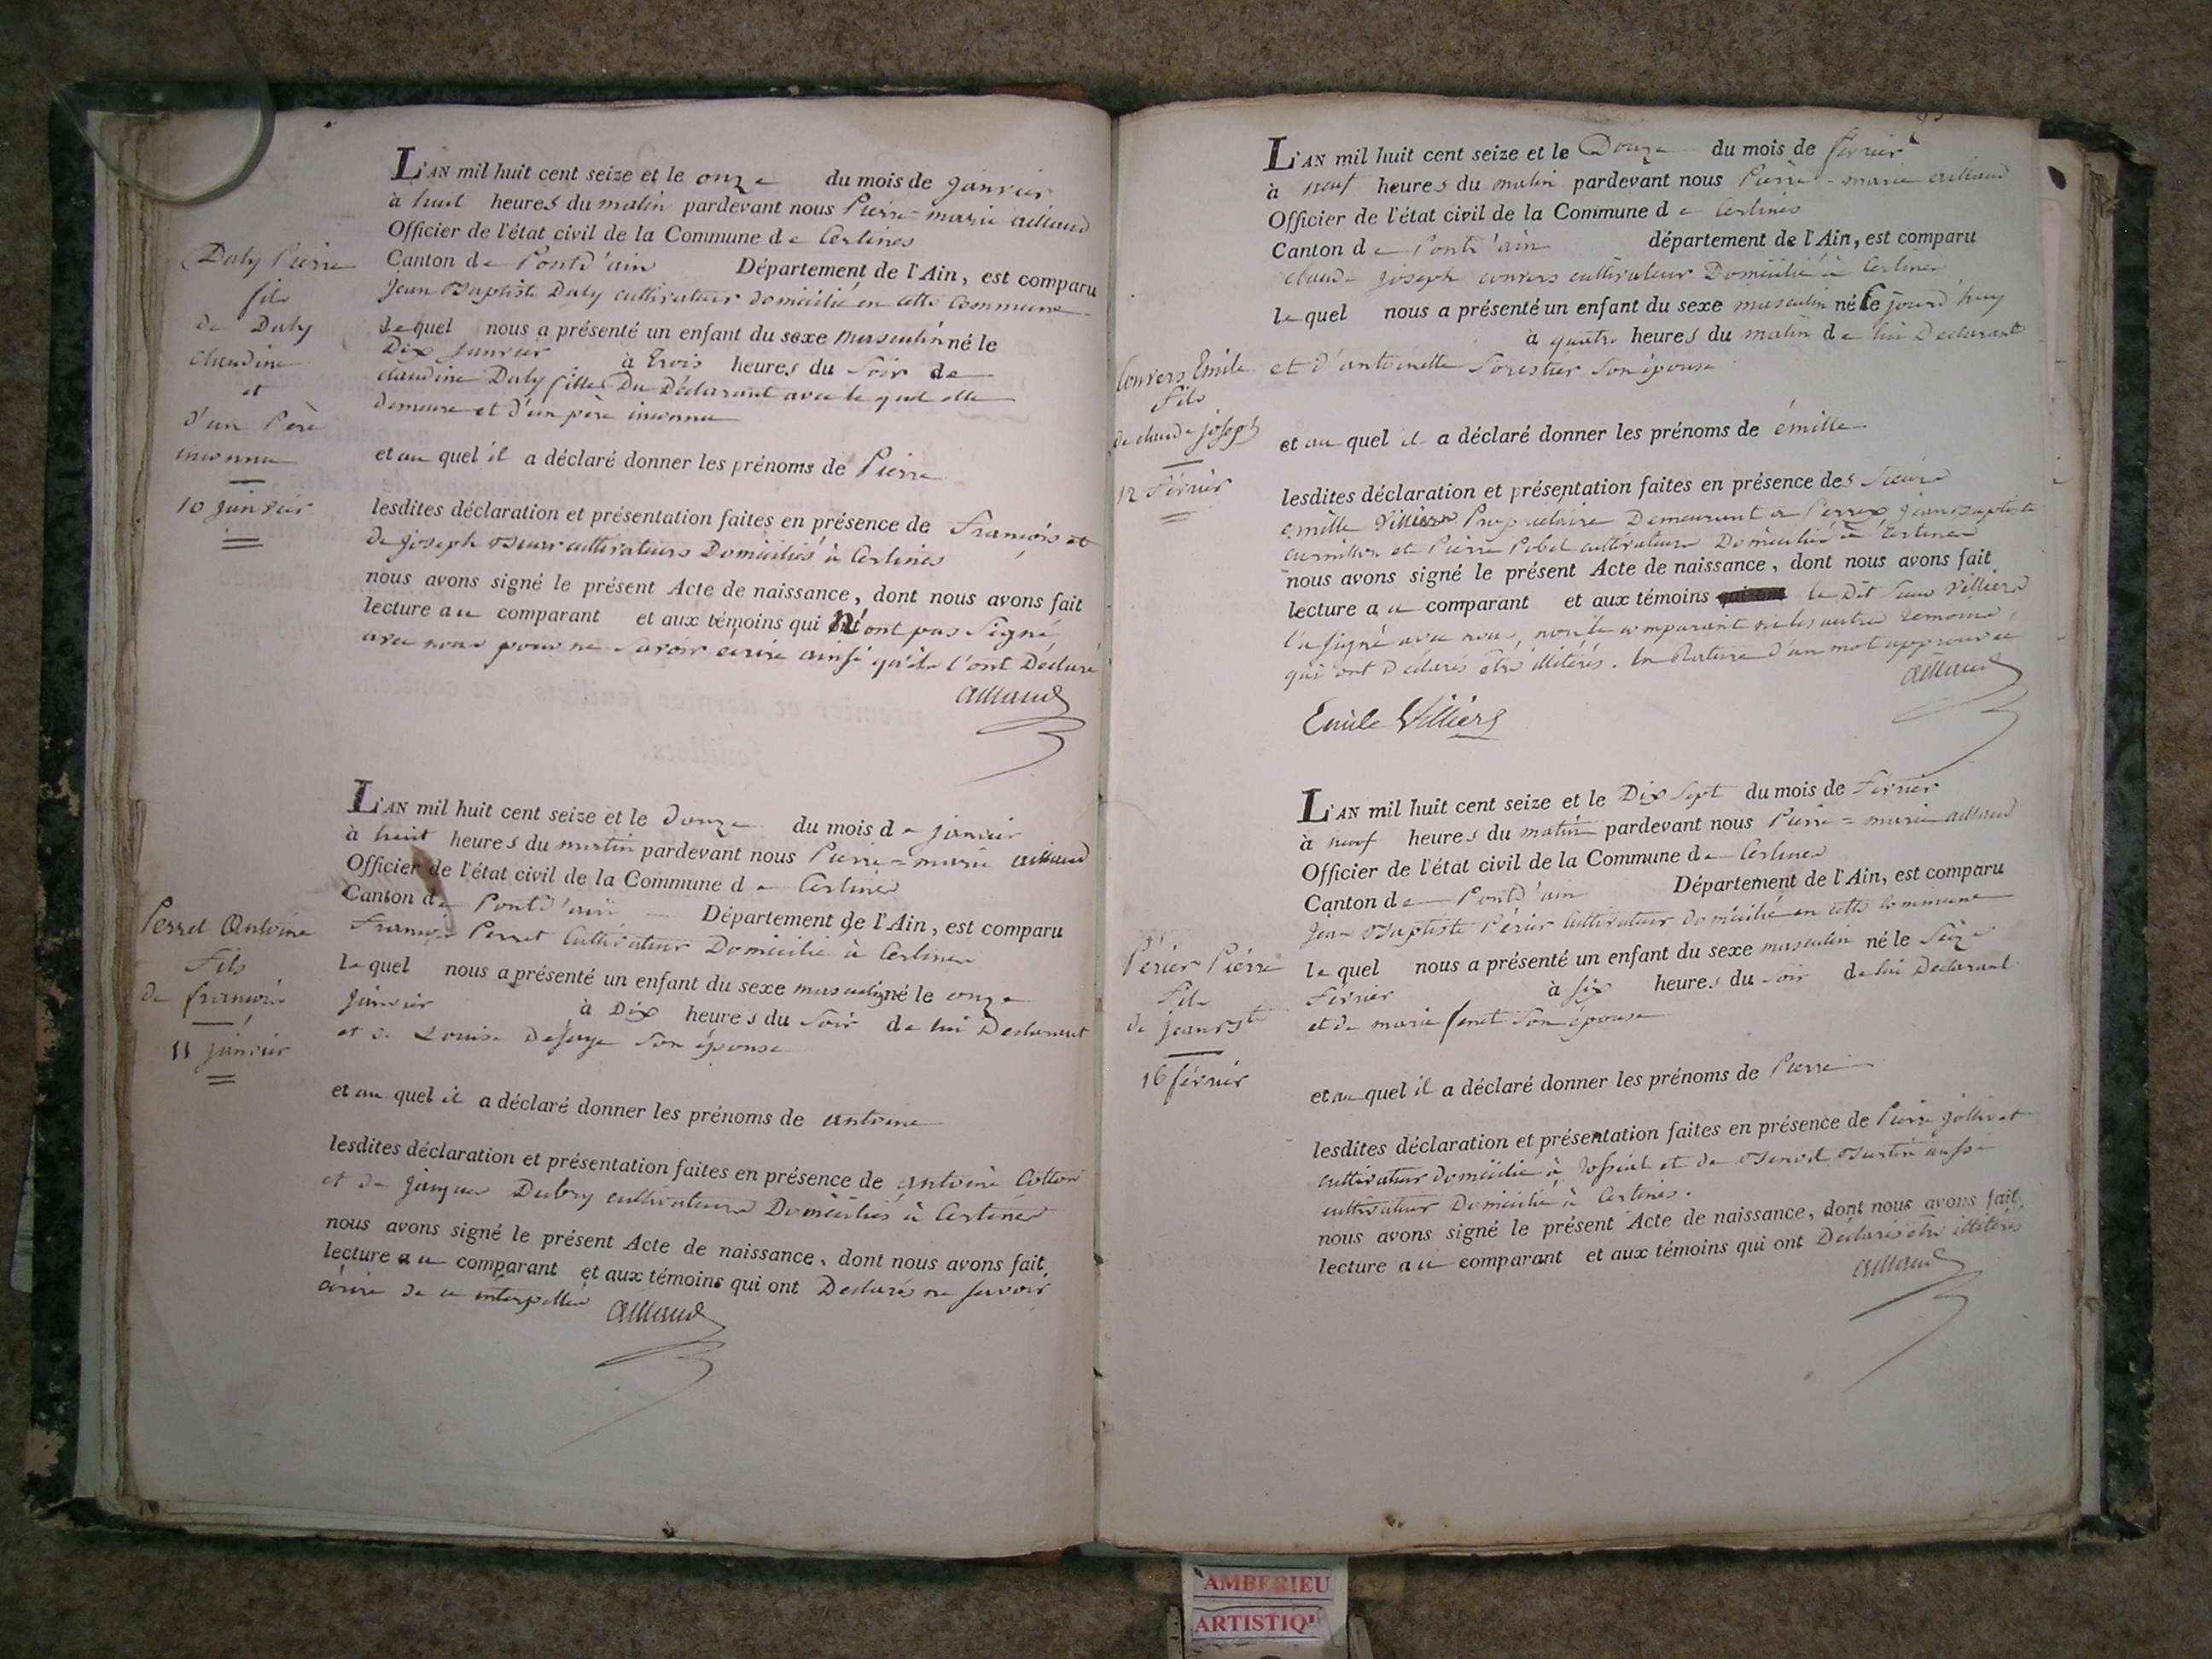 Daly Pierre
fils
de Daly
claudine
et
d'un Père
inconnu
10 janvier
L'AN mil huit cent seize et le onze du mois de janvier
à huit heures du matin pardevant nous Pierre-marie aillaud
Officier de l'état civil de la Commune de Certines
Canton de Pontd'ain Département de l'Ain, est comparu
Jean Baptiste Daly cultivateur domicilié en cette Commune
lequel nous a présenté un enfant du sexe masculin né le
Dix Janvier à trois heures du Soir de
claudine Daly fille Du Déclarant avec le quel elle
demeure et d'un père inconnu
et au quel il a déclaré donner les prénoms de Pierre
lesdites déclaration et présentation faites en présence de François et
de Joseph cultivateurs Domiciliés à Certines
nous avons signé le présent Acte de naissance, dont nous avons fait
lecture au comparant et aux témoins qui n'ont pas Signé
avec nous pour ne Savoir écrire ainsi qu'ils l'ont Déclaré
aillaud
Perret Antoine
Fils
de françois
11 janvier
L'AN mil huit cent seize et le Douze du mois de janvier
à huit heures du matin pardevant nous Pierre=marie aillaud
Officier de l'état civil de la Commune de Certines
Canton de Pontd'ain Département de l'Ain, est comparu
François Perret Cultivateur Domicilié à Certines
lequel nous a présenté un enfant du sexe masculin né le onze
Janvier à Dix heures du Soir de lui Déclarant
et de Louise Son épouse
et au quel il a déclaré donner les prénoms de antoine
lesdites déclaration et présentation faites en présence de antoine Cotton
et de jacques Dubry cultivateurs Domiciliés à Certines
nous avons signé le présent Acte de naissance, dont nous avons fait
lecture au comparant et aux témoins qui ont Déclarés ne Savoir
écrire de ce interpellés aillaud
Convers Emile
fils
de claude joseph
12 Février
L'AN mil huit cent seize et le Douze du mois de février
à neuf heures du matin pardevant nous Pierre-marie aillaud
Officier de l'état civil de la Commune de Certines
Canton de Pontd'ain département de l'Ain, est comparu
claude joseph convers cultivateur Domicilié à Certines
lequel nous a présenté un enfant du sexe masculin né le jourd'huy
à quatre heures du matin de lui Déclarant
et d'antoinette Forestier Son épouse
et au quel il a déclaré donner les prénoms de émille
lesdites déclaration et présentation faites en présence des Sieurs
emille Villiers Propriétaire Demeurant a Perrex jean baptiste
et Pierre Pobel cultivateurs Domiciliés à Certines
nous avons signé le présent Acte de naissance, dont nous avons fait
lecture au comparant et aux témoins le Dit Sieur Villiers
l'a Signé avec nous, non le comparant ni les autres temoins,
qui ont Déclarés être illitérés. la Rature d'un mot approuvée
aillaud
Emile Villiers
Périer Pierre
Fils
de jean bte
16 février
L'AN mil huit cent seize et le Dix Sept du mois de Février
à neuf heures du matin pardevant nous Pierre=marie aillaud
Officier de l'état civil de la Commune de Certines
Canton de Pontd'ain Département de l'Ain, est comparu
Jean Baptiste Périer Cultivateur domicilié en cette Commune
lequel nous a présenté un enfant du sexe masculin né le Seize
Février à Six heures du Soir de lui Déclarant
et de marie Son épouse
et au quel il a déclaré donner les prénoms de Pierre
lesdites déclaration et présentation faites en présence de Pierre jollivet
cultivateur domicilié à et de Benoit Burtin aussi
cultivateur Domicilié à Certines.
nous avons signé le présent Acte de naissance, dont nous avons fait
lecture au comparant et aux témoins qui ont Déclarés être illitérés
aillaud
AMBERIEU
ARTISTIQU